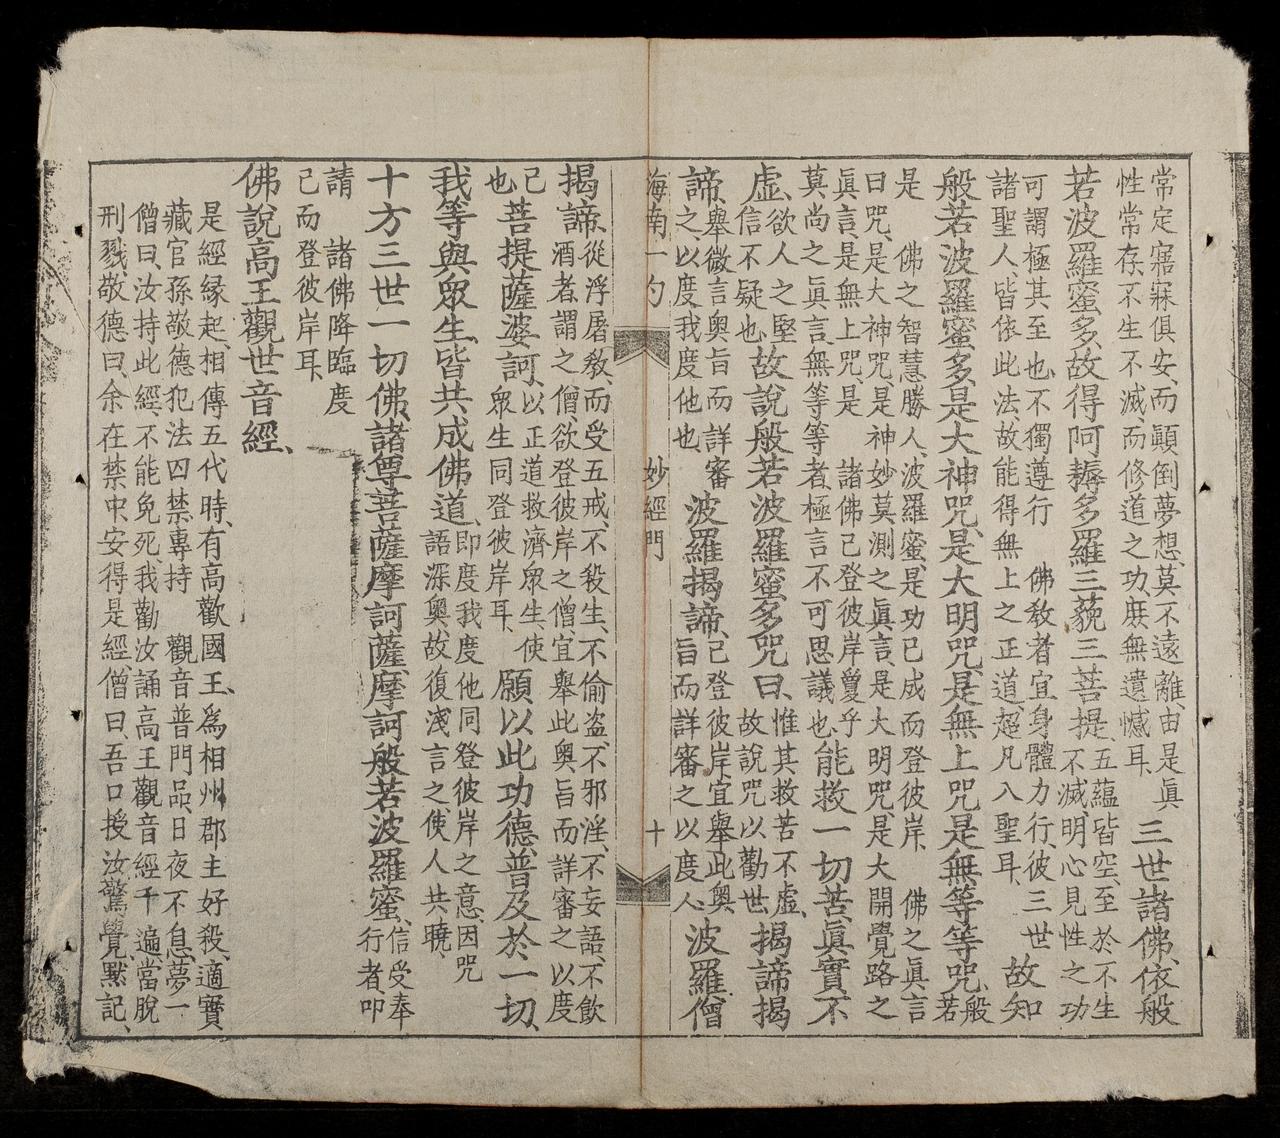 常定寤寐俱安、而顛倒夢想、莫不遠離、由是眞
性常存、不生不滅、而修道之功、庶無遺憾耳、
三世諸佛、依般
若波羅蜜多、故得阿耨多羅三藐三菩提、
五蘊皆空、至於不生
不滅、明心見性之功
可謂極其至也、不獨遵行　佛教者宜身體力行、彼三世
諸聖人、皆依此法、故能得無上之正道、超凡入聖耳、
故知
般若波羅蜜多、是大神咒、是大明咒、是無上咒、是無等等咒、
般
若
是　佛之智慧勝人、波羅蜜、是功已成而登彼岸、　佛之眞言
曰咒、是大神咒、是神妙莫測之眞言、是大明咒、是大開覺路之
眞言、是無上咒、是　諸佛已登彼岸、敻乎
莫尚之眞言、無等等者、極言不可思議也、
能救一切苦、眞實不
虛、
欲人之堅
信不疑也、
故說般若波羅蜜多咒曰、
惟其救苦不虛、
故說咒以勸世、
揭諦揭
諦、
舉微言奧旨而詳審
之、以度我度他也、
波羅揭諦、
已登彼岸、宜舉此奧
旨而詳審之以度人、
波羅僧
海南一勺　妙經門　十
揭諦、
從浮屠教、而受五戒、不殺生、不偷盜、不邪淫、不妄語、不飲
酒者、謂之僧、欲登彼岸之僧、宜舉此奧旨而詳審之以度
己
也、
菩提薩婆訶、
以正道救濟衆生、使
衆生同登彼岸耳、
願以此功德、普及於一切、
我等與眾生、皆共成佛道、
即度我度他同登彼岸之意、因咒
語深奧、故復淺言之使人共曉、
十方三世一切佛、諸尊菩薩摩訶薩、摩訶般若波羅蜜、
信受奉
行者、叩
請　諸佛降臨度
己而登彼岸耳、
佛說高王觀世音經、
是經緣起、相傳五代時、有高歡國王、爲相州郡主、好殺、適寶
藏官孫敬德犯法囚禁、專持　觀音普門品、日夜不息、夢一
僧曰、汝持此經、不能免死、我勸汝誦高王觀音經千遍、當脫
刑戮、敬德曰、余在禁中、安得是經、僧曰、吾口授汝、驚覺、默記、